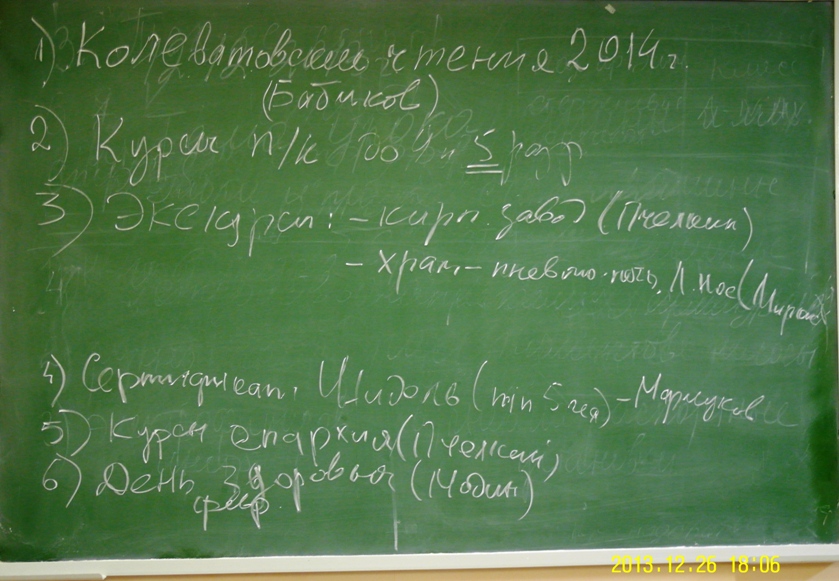 1) Колеватовские чтения 2014 г.
(Бабиков)
2) Курсы п/к 5 разр
3) Экскурсии: - кирп. завод (Пчелкин)
- храм - пневмо
4) Сертификат. Шидель (min 5 чел) -
5) Курсы епархия (Пчелкин)
6) День здоровья (Модин)
февр.
2013.12.26 18:06